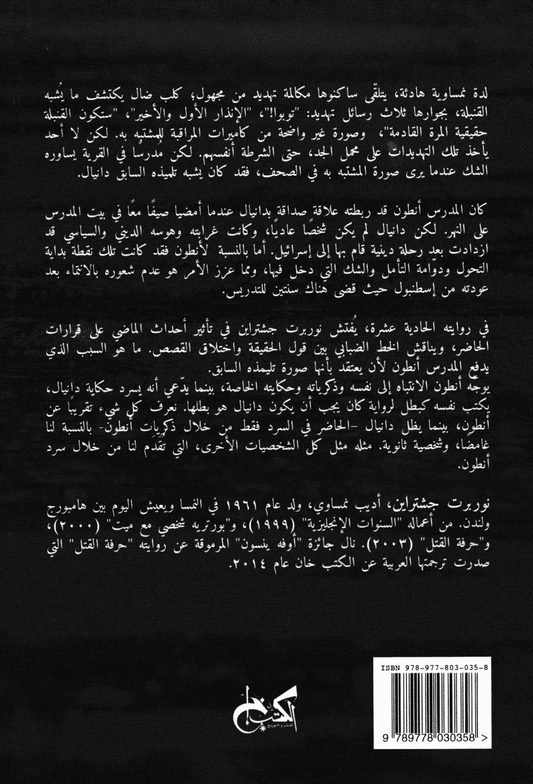 لدة نمساوية هادئة، يتلقّى ساكنوها مكالمة تهديد من مجهول؛ كلب ضال يكتشف ما يُشبه
القنبلة، بجوارها ثلاث رسائل تهديد: "توبوا!"، "الإنذار الأول والأخير"، "ستكون القنبلة
حقيقية المرة القادمة"، وصورة غير واضحة من كاميرات المراقبة للمشتبه به. لكن لا أحد
يأخذ تلك التهديدات على محمل الجد، حتى الشرطة أنفسهم. لكن مُدرسًا في القرية يساوره
الشك عندما يرى صورة المشتبه به في الصحف، فقد كان يشبه تلميذه السابق دانيال.
كان المدرس أنطون قد ربطته علاقة صداقة بدانيال عندما أمضيا صيفًا معًا في بيت المدرس
على النهر. لكن دانيال لم يكن شخصًا عاديًا، وكانت غرابته وهوسه الديني والسياسي قد
ازدادت بعد رحلة دينية قام بها إلى إسرائيل. أما بالنسبة لأنطون فقد كانت تلك نقطة بداية
التحول ودوّامة التأمل والشك التي دخل فيها، ومما عزز الأمر هو عدم شعوره بالانتماء بعد
عودته من إسطنبول حيث قضى هناك سنتين للتدريس.
في روايته الحادية عشرة، يُفتش نوربرت جشتراين في تأثير أحداث الماضي على قرارات
الحاضر، ويناقش الخط الضبابي بين قول الحقيقة واختلاق القصص. ما هو السبب الذي
يدفع المدرس أنطون لأن يعتقد بأنها صورة تليمذه السابق.
يوجّه أنطون الانتباه إلى نفسه وذكرياته وحكايته الخاصة، بينما يدّعي أنه يسرد حكاية دانيال،
يكتب نفسه كبطل لرواية كان يجب أن يكون دانيال هو بطلها. نعرف كل شيء تقريبًا عن
أنطون، بينما يظل دانيال -الحاضر في السرد فقط من خلال ذكريات أنطون- بالنسبة لنا
غامضا، وشخصية ثانوية. مثله مثل كل الشخصيات الأخرى، التي تُقدَم لنا من خلال سرد
أنطون.
نوربرت جشتراين، أديب نمساوي، ولد عام ١٩٦١ في النمسا ويعيش اليوم بين هامبورج
ولندن. من أعماله "السنوات الإنجليزية" (١٩٩٩)، و"بورتريه شخصي مع ميت" (٢٠٠٠)،
و"حرفة القتل" (٢٠٠٣). نال جائزة "أوفه ينسون" المرموقة عن روايته "حرفة القتل" التي
صدرت ترجمتها العربية عن الكتب خان عام ٢٠١٤.
ISBN 978-977-803-035-8
9 789778 030358 >
الكتب خان